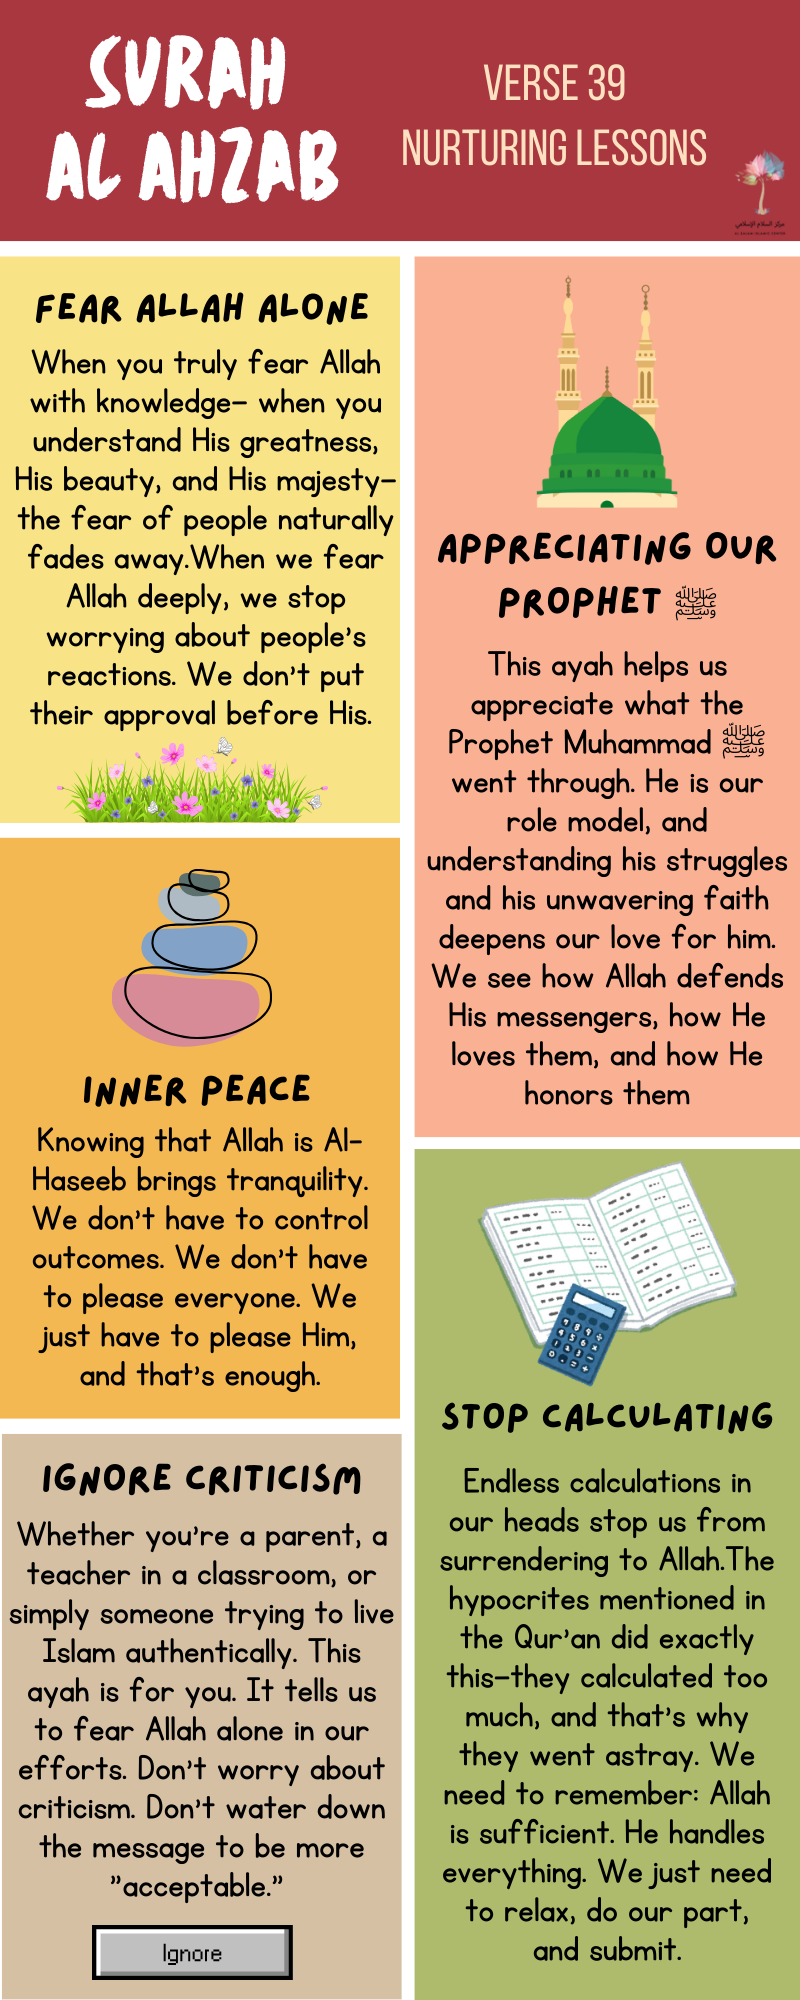 SURAH
AL AHZAB
VERSE 39
NURTURING LESSONS
مركز السلام الإسلامي
AL SALAM ISLAMIC CENTER
FEAR ALLAH ALONE
When you truly fear Allah
with knowledge– when you
understand His greatness,
His beauty, and His majesty–
the fear of people naturally
fades away.When we fear
Allah deeply, we stop
worrying about people's
reactions. We don't put
their approval before His.
APPRECIATING OUR
PROPHET ﷺ
This ayah helps us
appreciate what the
Prophet Muhammad ﷺ
went through. He is our
role model, and
understanding his struggles
and his unwavering faith
deepens our love for him.
We see how Allah defends
His messengers, how He
loves them, and how He
honors them
INNER PEACE
Knowing that Allah is Al-
Haseeb brings tranquility.
We don't have to control
outcomes. We don't have
to please everyone. We
just have to please Him,
and that's enough.
STOP CALCULATING
Endless calculations in
our heads stop us from
surrendering to Allah.The
hypocrites mentioned in
the Qur'an did exactly
this–they calculated too
much, and that's why
they went astray. We
need to remember: Allah
is sufficient. He handles
everything. We just need
to relax, do our part,
and submit.
IGNORE CRITICISM
Whether you're a parent, a
teacher in a classroom, or
simply someone trying to live
Islam authentically. This
ayah is for you. It tells us
to fear Allah alone in our
efforts. Don't worry about
criticism. Don't water down
the message to be more
"acceptable."
Ignore